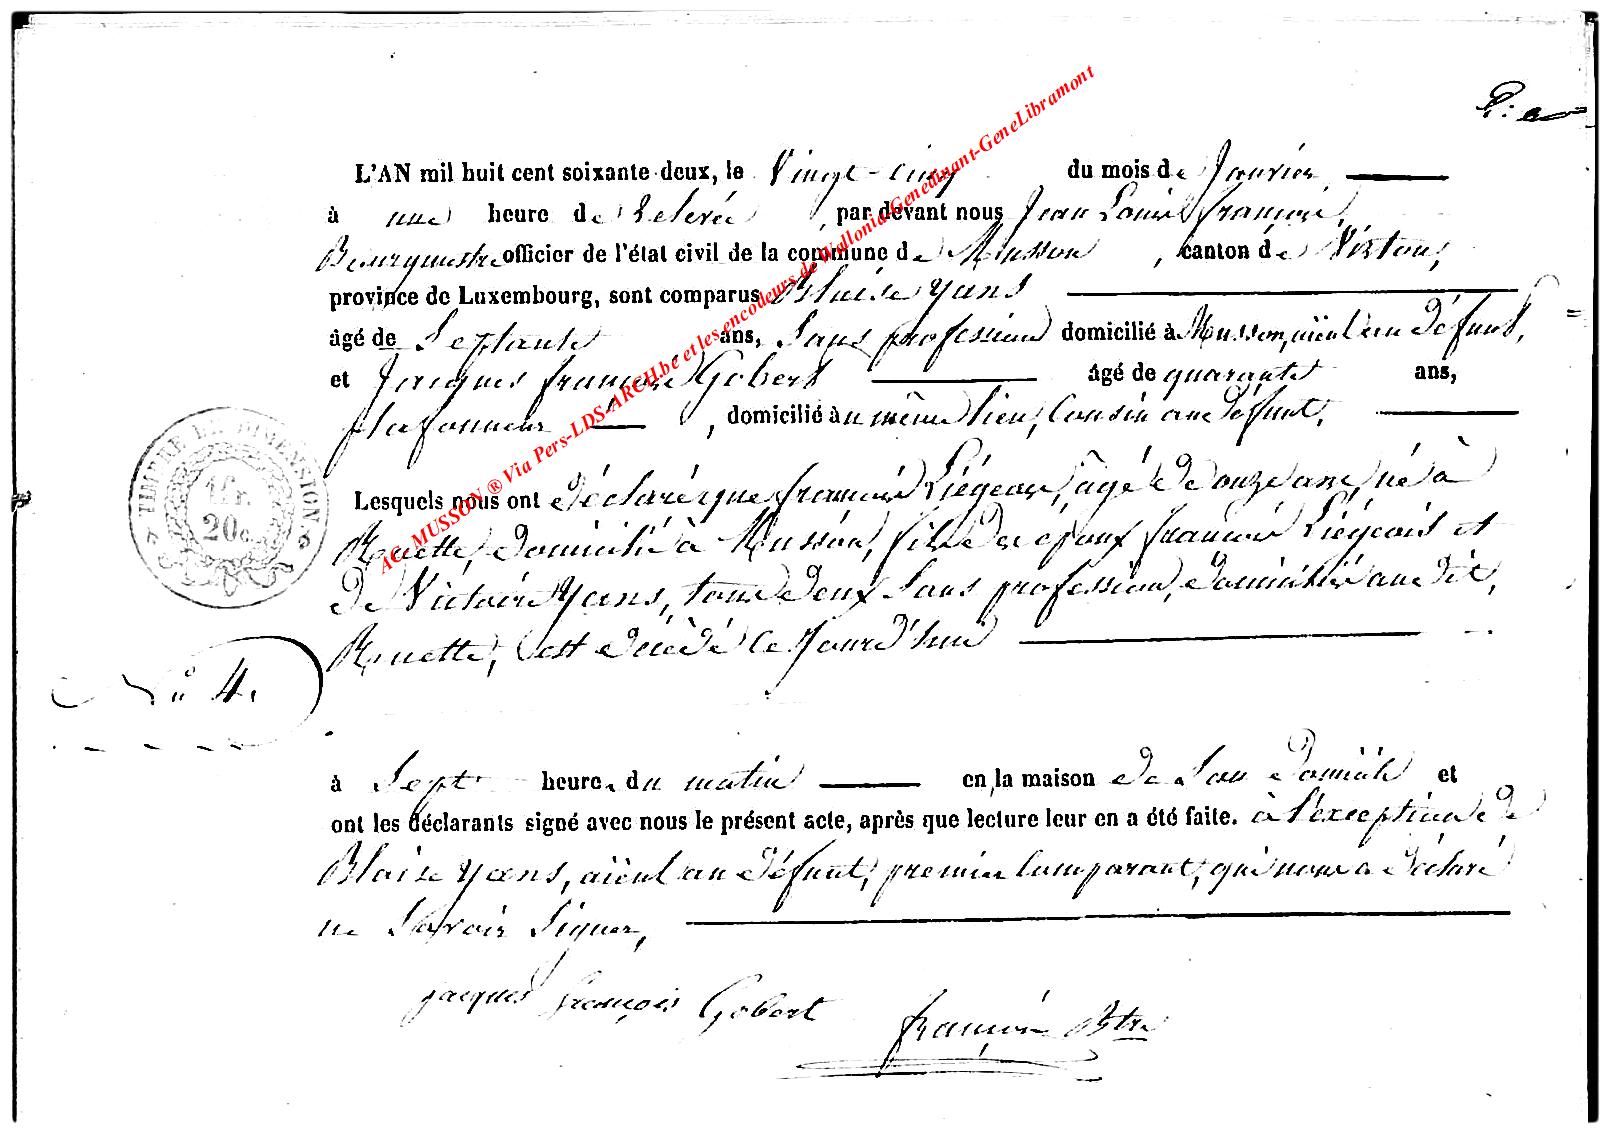 L'AN mil huit cent soixante-deux, le Vingt-cinq du mois de Janvier,
à une heure de relevée, par devant nous Jean Louis françois,
Bourgmestre officier de l'état civil de la commune de Musson, canton de Virton,
province de Luxembourg, sont comparus Blaise Yans
âgé de Septante ans, Sans profession domicilié à Musson, aïeul au défunt,
et Jacques françois Gobert âgé de quarante ans,
plafonneur, domicilié au même lieu, Cousin au défunt,
Lesquels nous ont déclaré que françois Liégeois, âgé de onze ans, né à
Ruette, domicilié à Musson, fils des époux françois Liégeois et
de Victoire Yans, tous deux Sans profession, domiciliés au dit,
Ruette, est décédé ce Jourd'hui
N° 4.
à Sept heures du matin en la maison de Son domicile et
ont les déclarants signé avec nous le présent acte, après que lecture leur en a été faite. à l'exception de
Blaise Yans, aïeul au défunt, premier Comparant, qui nous a déclaré
ne Savoir Signer,
jacques françois Gobert
françois Btre
TIMBRE DE DIMENSION.
1fr.
20c.
AC. MUSSON ® Via Pers-LDS-ARCH.be et les encodeurs de Wallonia-Genedinant-GeneLibramont